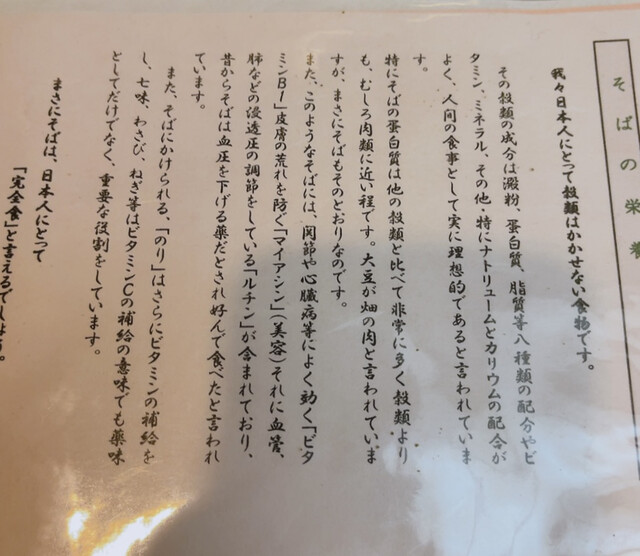 そばの栄養
我々日本人にとって穀類はかかせない食物です。
その穀類の成分は澱粉、蛋白質、脂質等八種類の配分やビ
タミン、ミネラル、その他、特にナトリュームとカリウムの配合が
よく、人間の食事として実に理想的であると言われていま
す。
特にそばの蛋白質は他の穀類と比べて非常に多く穀類より
も、むしろ肉類に近い程です。大豆が畑の肉と言われていま
すが、まさにそばもそのとおりなのです。
また、このようなそばには、関節や心臓病等によく効く「ビタ
ミンB1」皮膚の荒れを防ぐ「マイアシン」(美容)それに血管、
肺などの浸透圧の調節をしている「ルチン」が含まれており、
昔からそばは血圧を下げる薬だとされ好んで食べたと言われ
ています。
また、そばにかけられる、「のり」はさらにビタミンの補給を
し、七味、わさび、ねぎ等はビタミンCの補給の意味でも薬味
としてだけでなく、重要な役割をしています。
まさにそばは、日本人にとって
「完全食」と言えるでしょう。